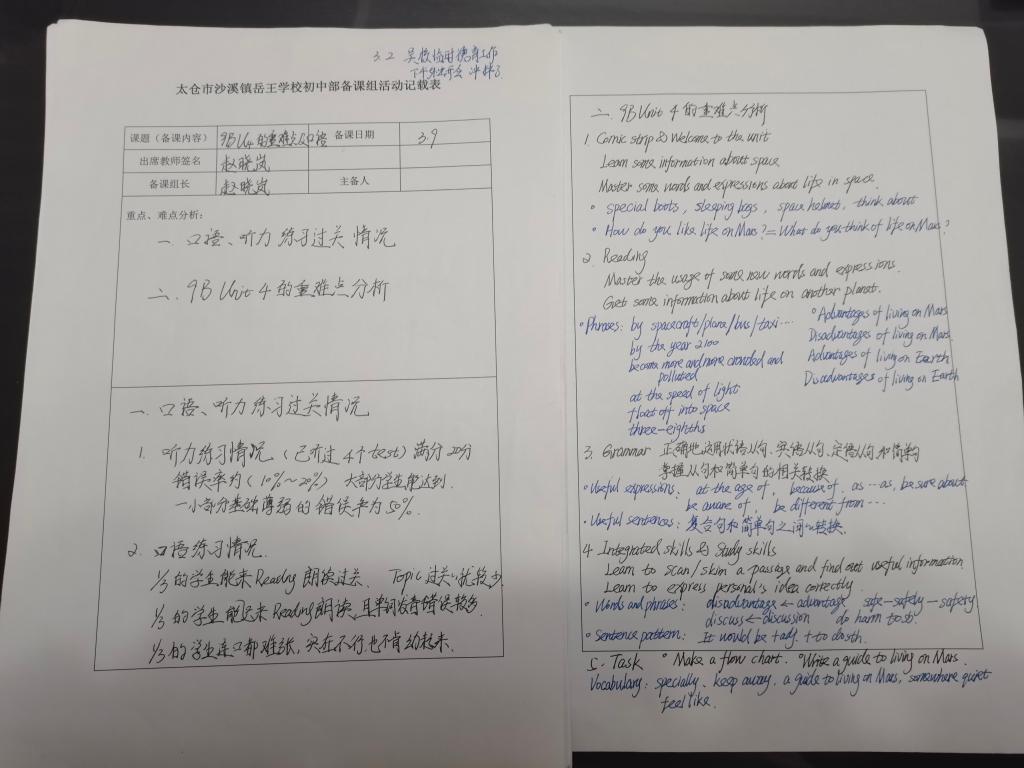 3.2 吴校
下午
太仓市沙溪镇岳王学校初中部备课组活动记载表
课题（备课内容） 9B U4的重难点及口语 备课日期 3.9
出席教师签名 赵晓岚
备课组长 赵晓岚 主备人
重点、难点分析：
一. 口语、听力练习过关情况
二. 9B Unit 4的重难点分析
一. 口语、听力练习过关情况
1. 听力练习情况（已听过4个test）满分20分
错误率为（10%~20%） 大部分学生能达到.
一小部分基础薄弱的错误率为50%.
2. 口语练习情况.
1/3的学生能来Reading朗读过关、 Topic过关
1/3的学生能来Reading朗读,且单词发音错误较多.
1/3的学生连口都难张,实在不行,也不肯
二. 9B Unit 4的重难点分析
1. Comic strip & Welcome to the unit
Learn some information about space
Master some words and expressions about life in space.
• special boots, sleeping bags, space helmet, think about
• How do you like life on Mars? = What do you think of life on Mars?
2. Reading
Master the usage of some new words and expressions.
Get some information about life on another planet.
• Phrases: by spacecraft/plane/bus/taxi...
by the year 2100
become more and more crowded and
polluted
at the speed of light
float off into space
three-eighths
• Advantages of living on Mars
Disadvantages of living on Mars
Advantages of living on Earth
Disadvantages of living on Earth
3. Grammar 正确地运用状语从句、宾语从句、定语从句和简单句
掌握从句和简单句的相关转换
• Useful expressions: at the age of, because of, as...as, be sure about
be aware of, be different from...
• Useful sentences: 复合句和简单句之间的转换.
4. Integrated skills & Study skills
Learn to scan/skim a passage and find out useful information.
Learn to express personal's idea correctly.
• Words and phrases: disadvantage ← advantage safe—safety—safely
discuss ← discussion do harm to sb.
• Sentence pattern: It would be + adj. + to do sth.
5. Task • Make a flow chart. • Write a guide to living on Mars.
Vocabulary: specially, keep away, a guide to living on Mars, somewhere quiet
feel like.